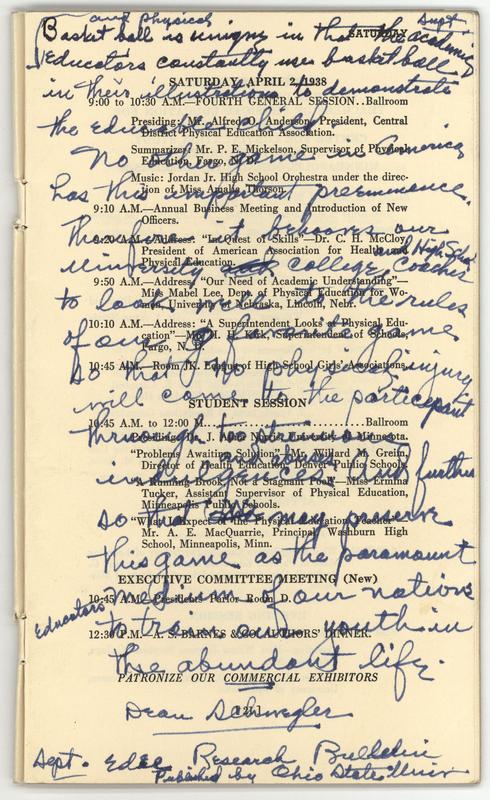 and physical Dept
Basket ball is unique in that the academic
SATURDAY
educators constantly use basketball
SATURDAY, APRIL 2, 1938
in their illustrations to demonstrate
9:00 to 10:30 A.M.—FOURTH GENERAL SESSION..Ballroom
Presiding: Mr. Alfred O. Anderson, President, Central
the educators
District Physical Education Association.
Summarizer: Mr. P. E. Mickelson, Supervisor of Physical
No other game in America
Education, Fargo, N. D.
Music: Jordan Jr. High School Orchestra under the direc-
has this important preeminence.
tion of Miss Amalie Thorson.
9:10 A.M.—Annual Business Meeting and Introduction of New
Officers.
Therefore it behooves our
9:20 A.M.—Address: "In Quest of Skills"—Dr. C. H. McCloy,
President of American Association for Health and
and High School
University College, coaches
Physical Education.
9:50 A.M.—Address: "Our Need of Academic Understanding"—
Miss Mabel Lee, Dept. of Physical Education for Wo-
to look well to the rules
men, University of Nebraska, Lincoln, Nebr.
10:10 A.M.—Address: "A Superintendent Looks at Physical Edu-
of our favorite game
cation"—Mr. H. H. Kirk, Superintendent of Schools,
Fargo, N. D.
10:45 A.M.—Room K. League of High School Girls' Associations.
so that no physical injury
will come to the participant
STUDENT SESSION
10:45 A.M. to 12:00 M. Ballroom
through too strenuous
Presiding: Dr. J. Norris, University of Minnesota.
"Problems Awaiting Solution"—Mr. Willard N. Greim,
and abuses
Director of Health Education, Denver Public Schools.
indulgences and further
"A Running Brook, Not a Stagnant Pool"—Miss Ermina
Tucker, Assistant Supervisor of Physical Education,
Minneapolis Public Schools.
so that may preserve
"What I Expect of the Physical Education Teacher"—
Mr. A. E. MacQuarrie, Principal, Washburn High
School, Minneapolis, Minn.
this game as the paramount
EXECUTIVE COMMITTEE MEETING (New)
10:45 A.M.—Presidents Parlor Room D.
medium of our nations
educators
12:30 P.M.—A. S. BARNES & CO. AUTHORS' DINNER.
to train our youth in
the abundant life.
PATRONIZE OUR COMMERCIAL EXHIBITORS
Dean Schwegler
Dept. Educ Research Bulletin
Published by Ohio State Univ